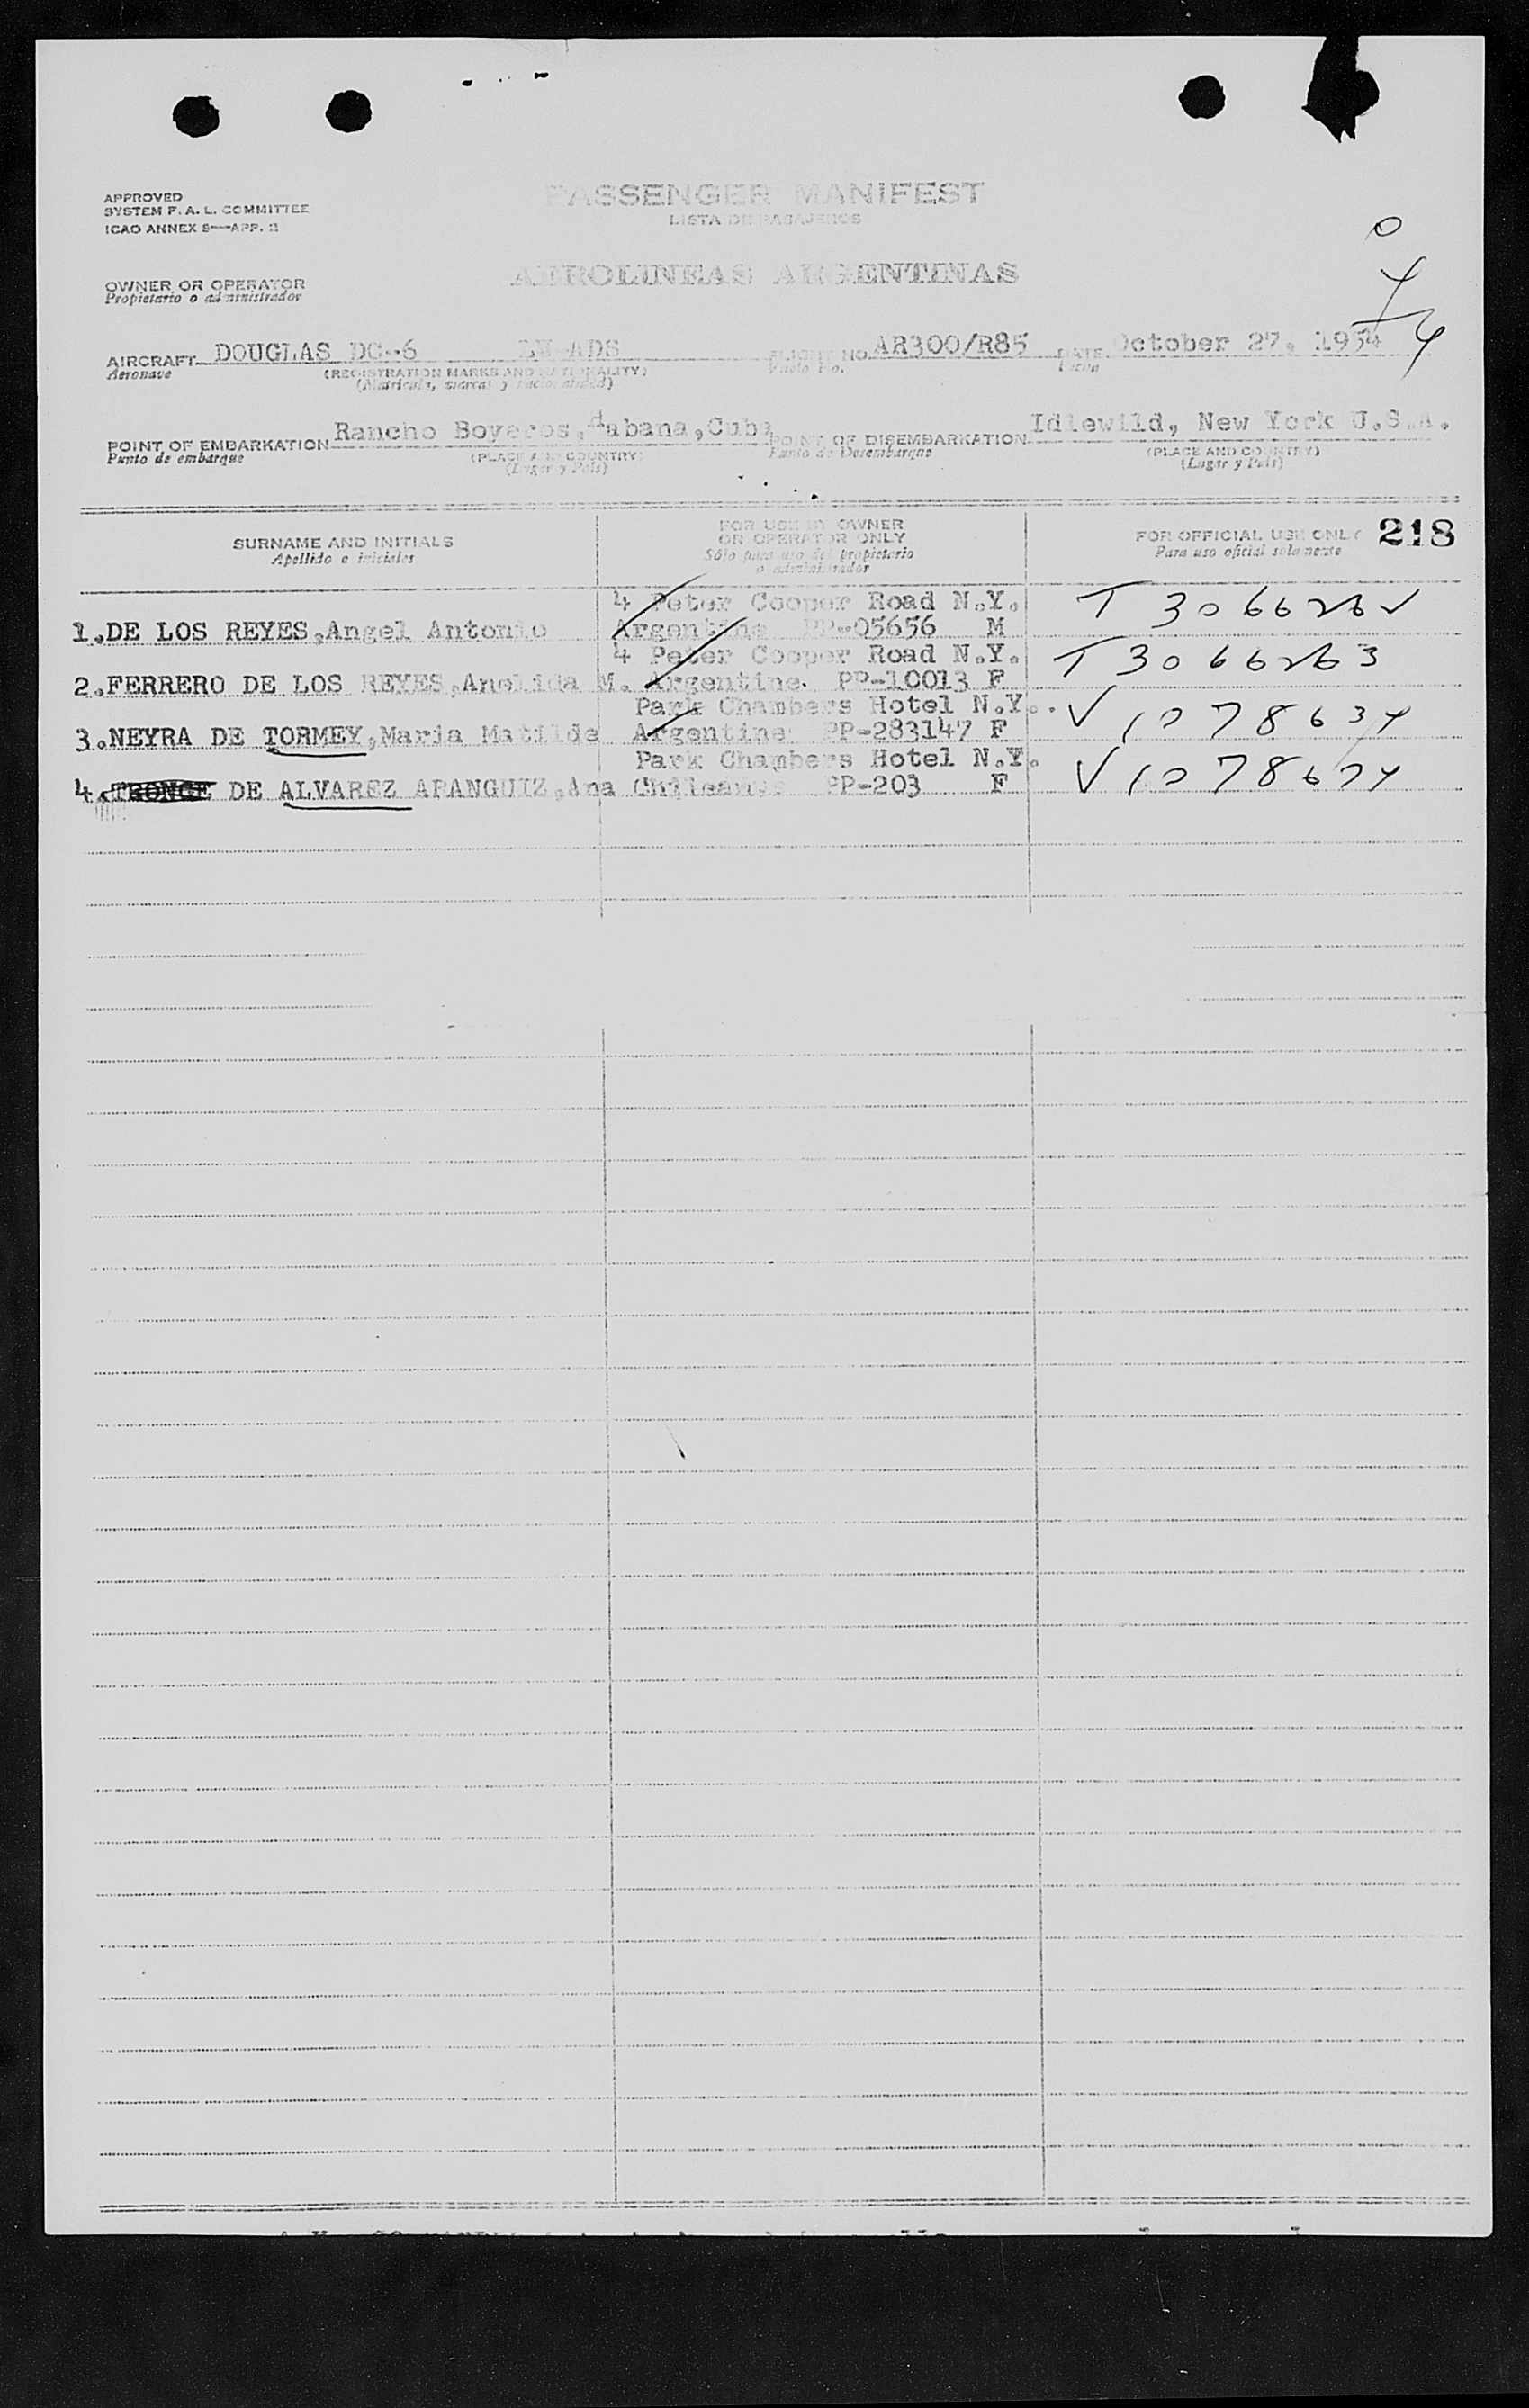 APPROVED
SYSTEM F. A. L. COMMITTEE
ICAO ANNEX 9—APP. II
PASSENGER MANIFEST
LISTA DE PASAJEROS
O
4
4
OWNER OR OPERATOR
Propietario o administrador
AEROLINEAS ARGENTINAS
AIRCRAFT DOUGLAS DC-6 LV-ADS FLIGHT NO. AR300/R85 DATE October 27, 1954
Aeronave (REGISTRATION MARKS AND NATIONALITY) Vuelo No. Fecha
(Matrícula, marcas y nacionalidad)
POINT OF EMBARKATION Rancho Boyeros, Habana, Cuba POINT OF DISEMBARKATION Idlewild, New York U.S.A.
Punto de embarque (PLACE AND COUNTRY) Punto de Desembarque (PLACE AND COUNTRY)
(Lugar y País) (Lugar y País)
SURNAME AND INITIALS FOR USE BY OWNER OR OPERATOR ONLY FOR OFFICIAL USE ONLY 218
Apellido e iniciales Sólo para uso del propietario o administrador Para uso oficial solamente
4 Peter Cooper Road N.Y. T 3066262
1.DE LOS REYES,Angel Antonio Argentine PP-05656 M
4 Peter Cooper Road N.Y. T 3066263
2.FERRERO DE LOS REYES,Anelida M. Argentine. PP-10013 F
Park Chambers Hotel N.Y. V1078634
3.NEYRA DE TORMEY,Maria Matilde Argentine PP-283147 F
Park Chambers Hotel N.Y. V1078674
4.TRONGE DE ALVAREZ ARANGUIZ,Ana Chilean PP-203 F